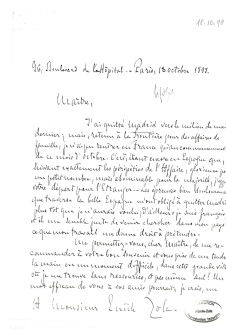 18.10.98
96, Boulevard de l'Hôpital — Paris, 18 octobre 1898.
Maître,
J'ai quitté Madrid vers le milieu de mai
dernier; mais, retenu à la frontière pour des affaires de
famille, je n'ai pu rentrer en France qu'au commencement
de ce mois d'octobre. C'est, étant encore en Espagne que,
suivant exactement les péripéties de l'Affaire,
un petit nombre, mais abominable pour la majorité, j'
votre départ pour l'Etranger. Les
que traverse la belle Espagne m'ont obligé à quitter Madrid
plus tôt que je n'aurais voulu; d'ailleurs je suis français
et il me semble juste de venir chercher dans mon pays
ce que mon travail me donne droit à prétendre.
Me permettez-vous, cher Maître, de me re-
commander à votre bon souvenir et vous prier de me tendre
la main en ce moment difficile, dans cette grande ville
où je me trouve sans ressources, et pas même un lit. Un
mot de vous à vos amis pourrait, je crois, me
A Monsieur Emile Zola.